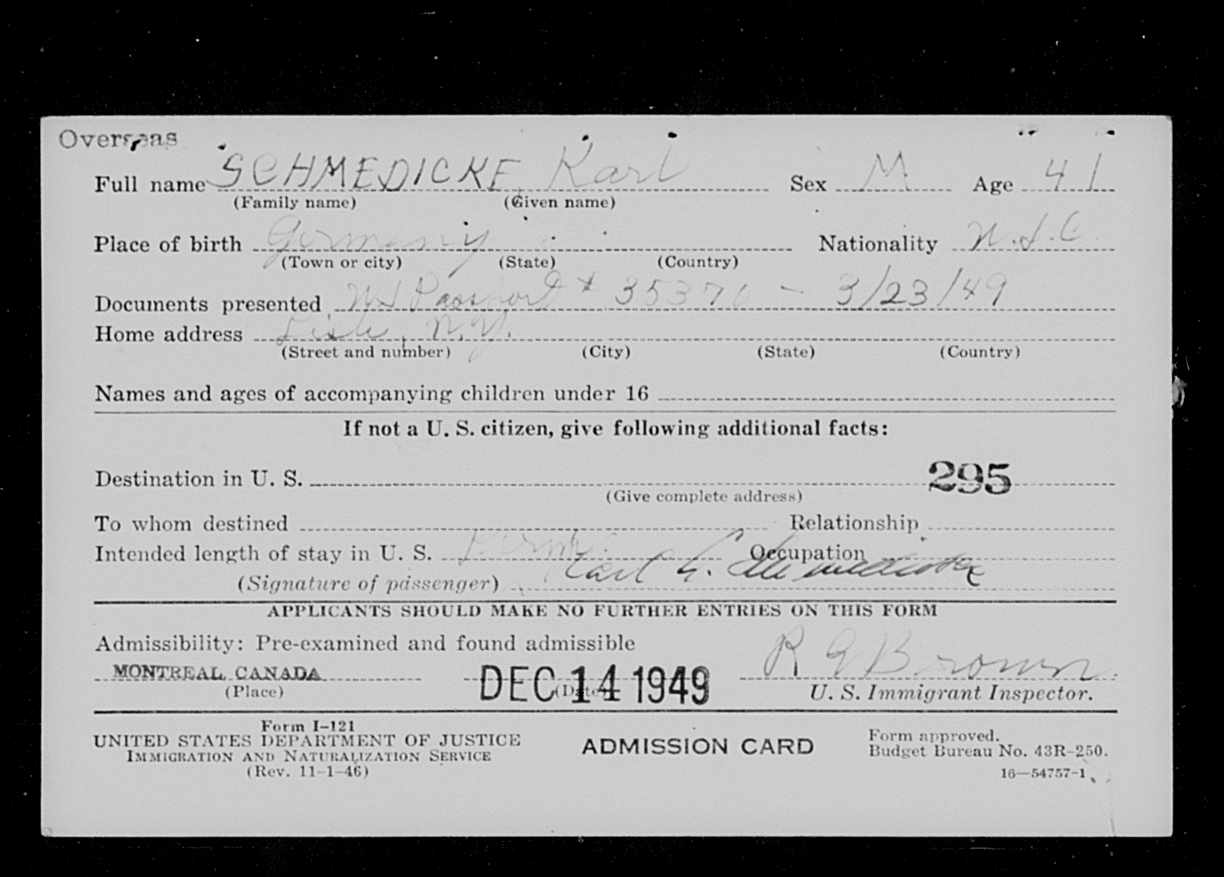 Overseas
Full name SCHMEDICKE, Karl Sex M Age 41
(Family name) (Given name)
Place of birth Germany Nationality U.S.C.
(Town or city) (State) (Country)
Documents presented US Passport # 35370 - 3/23/49
Home address Lisle, N.Y.
(Street and number) (City) (State) (Country)
Names and ages of accompanying children under 16
If not a U. S. citizen, give following additional facts:
Destination in U. S. 295
(Give complete address)
To whom destined Relationship
Intended length of stay in U. S. Perm. Occupation
(Signature of passenger) Karl G. Schmedicke
APPLICANTS SHOULD MAKE NO FURTHER ENTRIES ON THIS FORM
Admissibility: Pre-examined and found admissible
MONTREAL CANADA DEC 14 1949 R G Brown
(Place) (Date) U. S. Immigrant Inspector.
Form I-121
UNITED STATES DEPARTMENT OF JUSTICE ADMISSION CARD Form approved.
IMMIGRATION AND NATURALIZATION SERVICE Budget Bureau No. 43R-250.
(Rev. 11-1-46) 16—54757-1